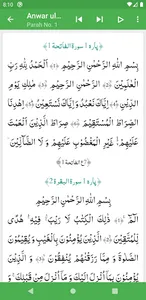 8:10
Anwar ul...
Parah No. 1
﴿ پارہ ١ سورة الفاتحة ١ ﴾
بِسْمِ اللهِ الرَّحْمٰنِ الرَّحِيْمِ ﴿١﴾ اَلْحَمْدُ لِلّٰهِ رَبِّ
الْعٰلَمِيْنَ ﴿٢﴾ الرَّحْمٰنِ الرَّحِيْمِ ﴿٣﴾ مٰلِكِ يَوْمِ
الدِّيْنِ ﴿٤﴾ اِيَّاكَ نَعْبُدُ وَاِيَّاكَ نَسْتَعِيْنُ ﴿٥﴾ اِهْدِنَا
الصِّرَاطَ الْمُسْتَقِيْمَ ﴿٦﴾ صِرَاطَ الَّذِيْنَ اَنْعَمْتَ
عَلَيْهِمْ غَيْرِ الْمَغْضُوْبِ عَلَيْهِمْ وَلَا الضَّآلِّيْنَ ﴿٧﴾
﴿ پارہ ١ سورة البقرة 2 ﴾
بِسْمِ اللهِ الرَّحْمٰنِ الرَّحِيْمِ
الٓمّٓ ﴿١﴾ ذٰلِكَ الْكِتٰبُ لَا رَيْبَ فِيْهِ هُدًى
لِّلْمُتَّقِيْنَ ﴿٢﴾ الَّذِيْنَ يُؤْمِنُوْنَ بِالْغَيْبِ وَيُقِيْمُوْنَ
الصَّلٰوةَ وَ مِمَّا رَزَقْنٰهُمْ يُنْفِقُوْنَ ﴿٣﴾ وَالَّذِيْنَ
يُؤْمِنُوْنَ بِمَآ اُنْزِلَ اِلَيْكَ وَمَآ اُنْزِلَ مِنْ قَبْلِكَ وَ